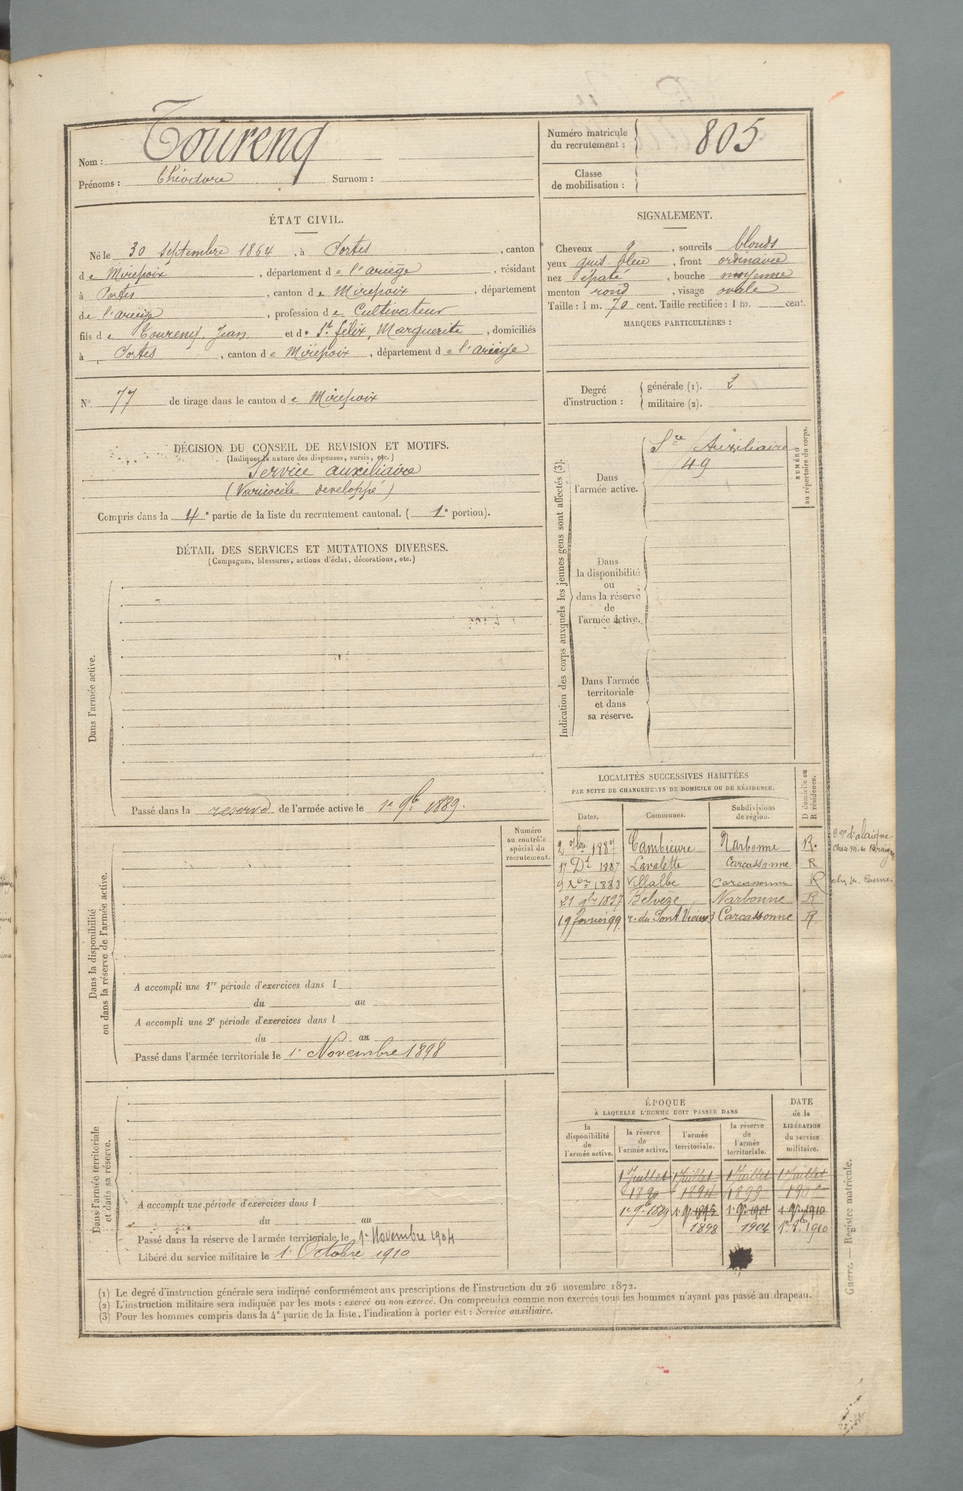 Nom : Toureng
Prénoms : Théodore Surnom :
Numéro matricule du recrutement : 805
Classe de mobilisation :
ÉTAT CIVIL.
Né le 30 septembre 1864, à Portes, canton
de Mirepoix, département de l'ariège, résidant
à Portes, canton de Mirepoix, département
de l'ariège, profession de Cultivateur
fils de Toureng, Jean et de St félix, Marguerite, domiciliés
à Portes, canton de Mirepoix, département de l'ariège
SIGNALEMENT.
Cheveux , sourcils blonds
yeux gris bleu, front ordinaire
nez épaté, bouche moyenne
menton rond, visage ovale
Taille : 1 m. 70 cent. Taille rectifiée : 1 m. cent.
MARQUES PARTICULIÈRES :
N° 77 de tirage dans le canton de Mirepoix
Degré d'instruction : générale (1). 2
militaire (2).
DÉCISION DU CONSEIL DE REVISION ET MOTIFS.
(Indiquer la nature des dispenses, sursis, etc.)
Service auxiliaire
(Varicocèle developpé)
Compris dans la 4e partie de la liste du recrutement cantonal. ( 1e portion).
DÉTAIL DES SERVICES ET MUTATIONS DIVERSES.
(Campagnes, blessures, actions d'éclat, décorations, etc.)
Dans l'armée active.
Passé dans la reserve de l'armée active le 1er 9bre 1889.
Numéro au contrôle spécial du recrutement.
Dans la disponibilité ou dans la réserve de l'armée active.
A accompli une 1re période d'exercices dans l
du au
A accompli une 2e période d'exercices dans l
du au
Passé dans l'armée territoriale le 1er Novembre 1898
Dans l'armée territoriale et dans sa réserve.
A accompli une période d'exercices dans l
du au
Passé dans la réserve de l'armée territoriale le 1er Novembre 1904
Libéré du service militaire le 1er Octobre 1910
Indication des corps auxquels les jeunes gens sont affectés (3).
NUMÉRO au répertoire du corps.
Dans l'armée active.
Sce Auxiliaire
49
Dans la disponibilité ou dans la réserve de l'armée active.
Dans l'armée territoriale et dans sa réserve.
LOCALITÉS SUCCESSIVES HABITÉES
PAR SUITE DE CHANGEMENTS DE DOMICILE OU DE RÉSIDENCE.
D domicile ou R résidence.
Dates. Communes. Subdivisions de région.
Cambieure Narbonne R.
17 Dt 1887 Lavalette Carcassonne R
1888 Villalbe Carcassonne R
21 Belvèze Narbonne R
19 fevrier 99 r. du Pont Vieux Carcassonne R
ÉPOQUE
À LAQUELLE L'HOMME DOIT PASSER DANS
DATE de la LIBÉRATION du service militaire.
la disponibilité de l'armée active. la réserve de l'armée active. l'armée territoriale. la réserve de l'armée territoriale.
1 Juillet 1 Juillet 1 Juillet 1 Juillet
1894 1899
1er 9bre 1889
1898 1904 1910
(1) Le degré d'instruction générale sera indiqué conformément aux prescriptions de l'instruction du 26 novembre 1872.
(2) L'instruction militaire sera indiquée par les mots : exercé ou non exercé. On comprendra comme non exercés tous les hommes n'ayant pas passé au drapeau.
(3) Pour les hommes compris dans la 4e partie de la liste, l'indication à porter est : Service auxiliaire.
Guerre. Registre matricule.